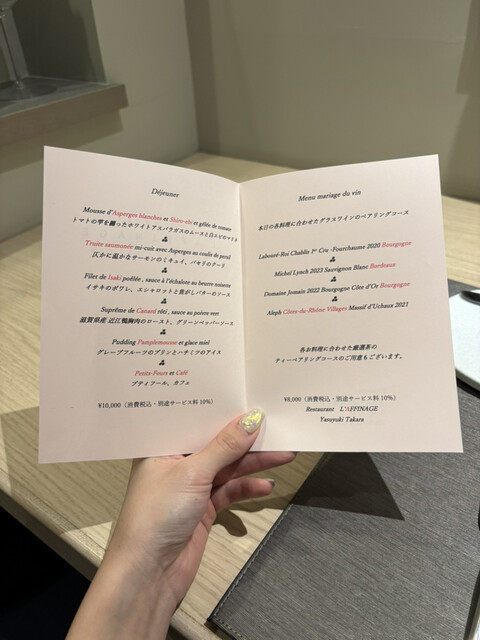 Déjeuner
Mousse d'Asperges blanches et Shiro-ebi et gélée de tomate
トマトの雫を纏ったホワイトアスパラガスのムースと白エビのマリネ
Truite saumonée mi-cuit avec Asperges au coulis de persil
仄かに温かなサーモンのミキュイ、パセリのクーリ
Filet de Isaki poêlée , sauce à l'échalote au beurre noisette
イサキのポワレ、エシャロットと焦がしバターのソース
Suprême de Canard rôti , sauce au poivre vert
滋賀県産 近江鴨胸肉のロースト、グリーンペッパーソース
Pudding Pamplemousse et glace miel
グレープフルーツのプリンとハチミツのアイス
Petits-Fours et Café
プティフール、カフェ
¥10,000（消費税込・別途サービス料 10%）
Menu mariage du vin
本日の各料理に合わせたグラスワインのペアリングコース
Labouré-Roi Chablis 1er Cru -Fourchaume 2020 Bourgogne
Michel Lynch 2023 Sauvignon Blanc Bordeaux
Domaine Jomain 2022 Bourgogne Côte d'Or Bourgogne
Aleph Côtes-du-Rhône Villages Massif d'Uchaux 2021
各お料理に合わせた厳選茶の
ティーペアリングコースのご用意もございます。
¥8,000（消費税込・別途サービス料 10%）
Restaurant L'AFFINAGE
Yasuyuki Takara